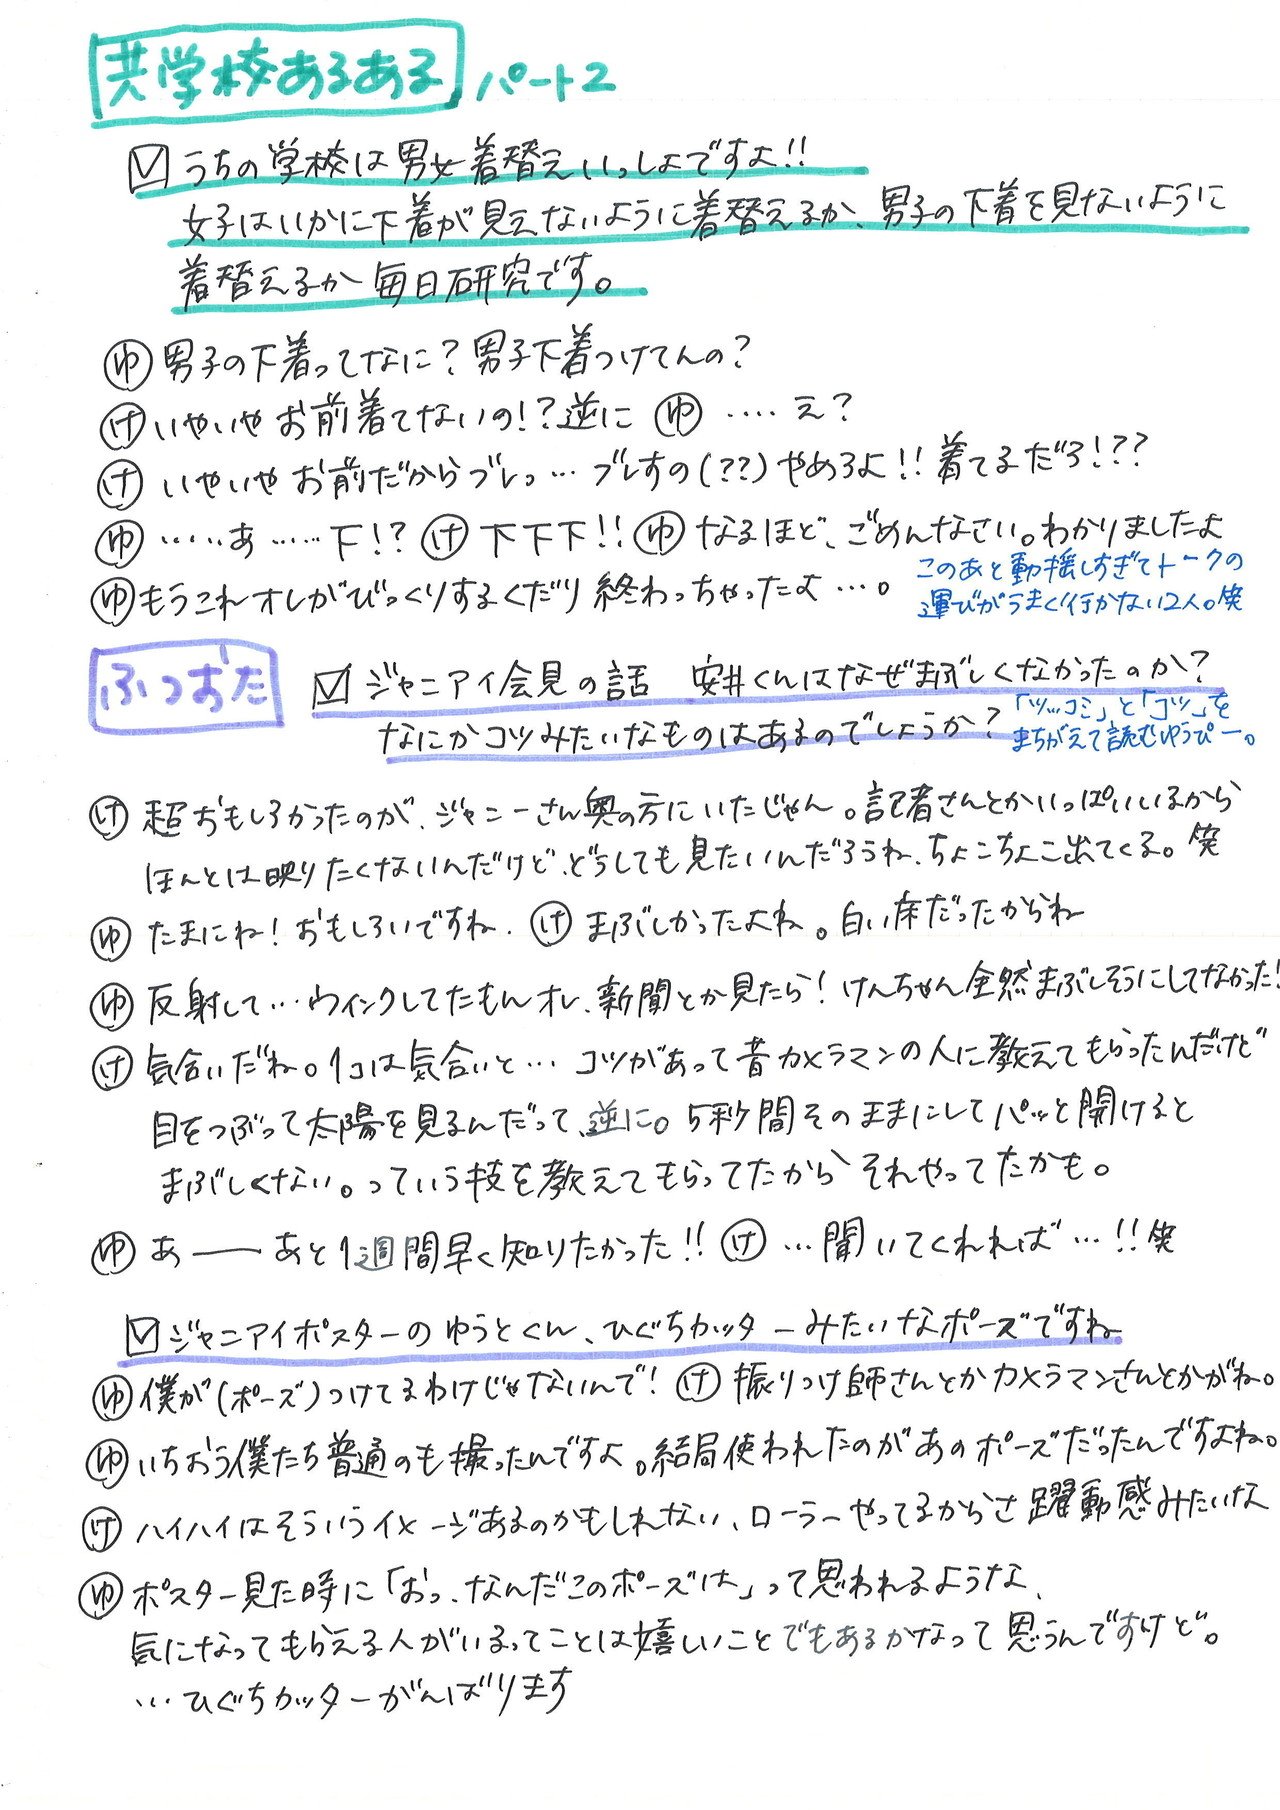 共学校あるある パート2
☑うちの学校は男女着替えいっしょですよ!!
女子はいかに下着が見えないように着替えるか、男子の下着を見ないように
着替えるか毎日研究です。
ゆ 男子の下着ってなに?男子下着つけてんの?
け いやいやお前着てないの!?逆に ゆ ‥‥え?
け いやいやお前だからブレっ…ブレすの(??)やめろよ!!着てるだろ!??
ゆ ‥‥‥あ‥‥‥下!? け 下下下!! ゆ なるほど、ごめんなさい。わかりましたよ
このあと動揺しすぎてトークの
運びがうまく行かない2人。笑
ゆ もうこれオレがびっくりするくだり終わっちゃったよ…。
ふつおた ☑ジャニアイ会見の話 安井くんはなぜまぶしくなかったのか?
なにかコツみたいなものはあるのでしょうか?
「ツッコミ」と「コツ」を
まちがえて読むゆうぴー。
け 超おもしろかったのが、ジャニーさん奥の方にいたじゃん。記者さんとかいっぱいいるから
ほんとは映りたくないんだけど、どうしても見たいんだろうね、ちょこちょこ出てくる。笑
ゆ たまにね!おもしろいですね. け まぶしかったよね。白い床だったからね
ゆ 反射して…ウィンクしてたもんオレ、新聞とか見たら!けんちゃん全然まぶしそうにしてなかった!
け 気合いだね。1コは気合いと…コツがあって昔カメラマンの人に教えてもらったんだけど
目をつぶって太陽を見るんだって、逆に。5秒間そのままにしてパッと開けると
まぶしくない。っていう技を教えてもらってたからそれやってたかも。
ゆ あ――あと1週間早く知りたかった!! け …聞いてくれれば…!!笑
☑ジャニアイポスターのゆうとくん、ひぐちカッターみたいなポーズですね
ゆ 僕が(ポーズ)つけてるわけじゃないんで! け 振りつけ師さんとかカメラマンさんとかがね。
ゆ いちおう僕たち普通のも撮ったんですよ。結局使われたのがあのポーズだったんですよね。
け ハイハイはそういうイメージあるのかもしれない、ローラーやってるからさ躍動感みたいな
ゆ ポスター見た時に「おっ、なんだこのポーズは」って思われるような、
気になってもらえる人がいるってことは嬉しいことでもあるかなって思うんですけど。
…ひぐちカッターがんばります